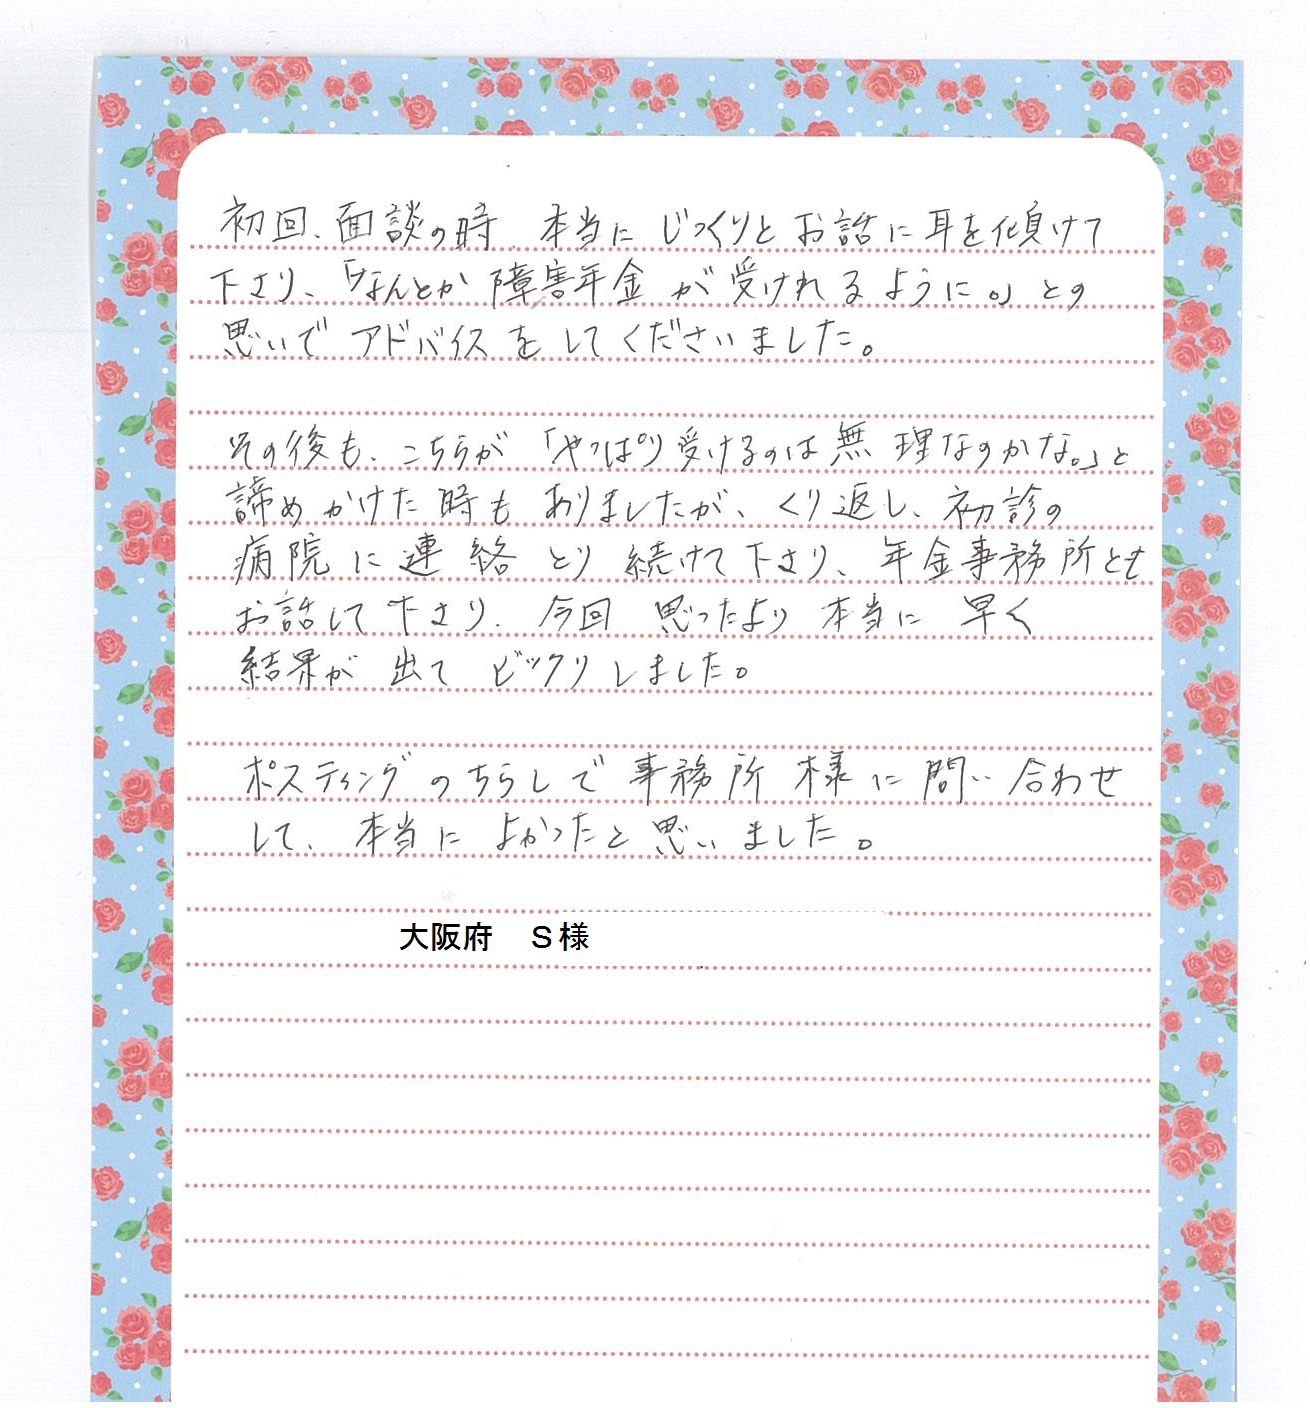 初回、面談の時、本当に じっくりと お話に 耳を傾けて
下さり、「なんとか 障害年金 が 受けれるように。」との
思いで アドバイスを してくださいました。
その後も、こちらが 「やっぱり受けるのは無理なのかな。」と
諦めかけた時も ありましたが、くり返し、初診の
病院に 連絡 とり 続けて下さり、年金事務所とも
お話して下さり、今回 思ったより 本当に 早く
結果が 出て ビックリしました。
ポスティングのちらしで 事務所様に 問い合わせ
して、本当に よかったと思いました。
大阪府 S様